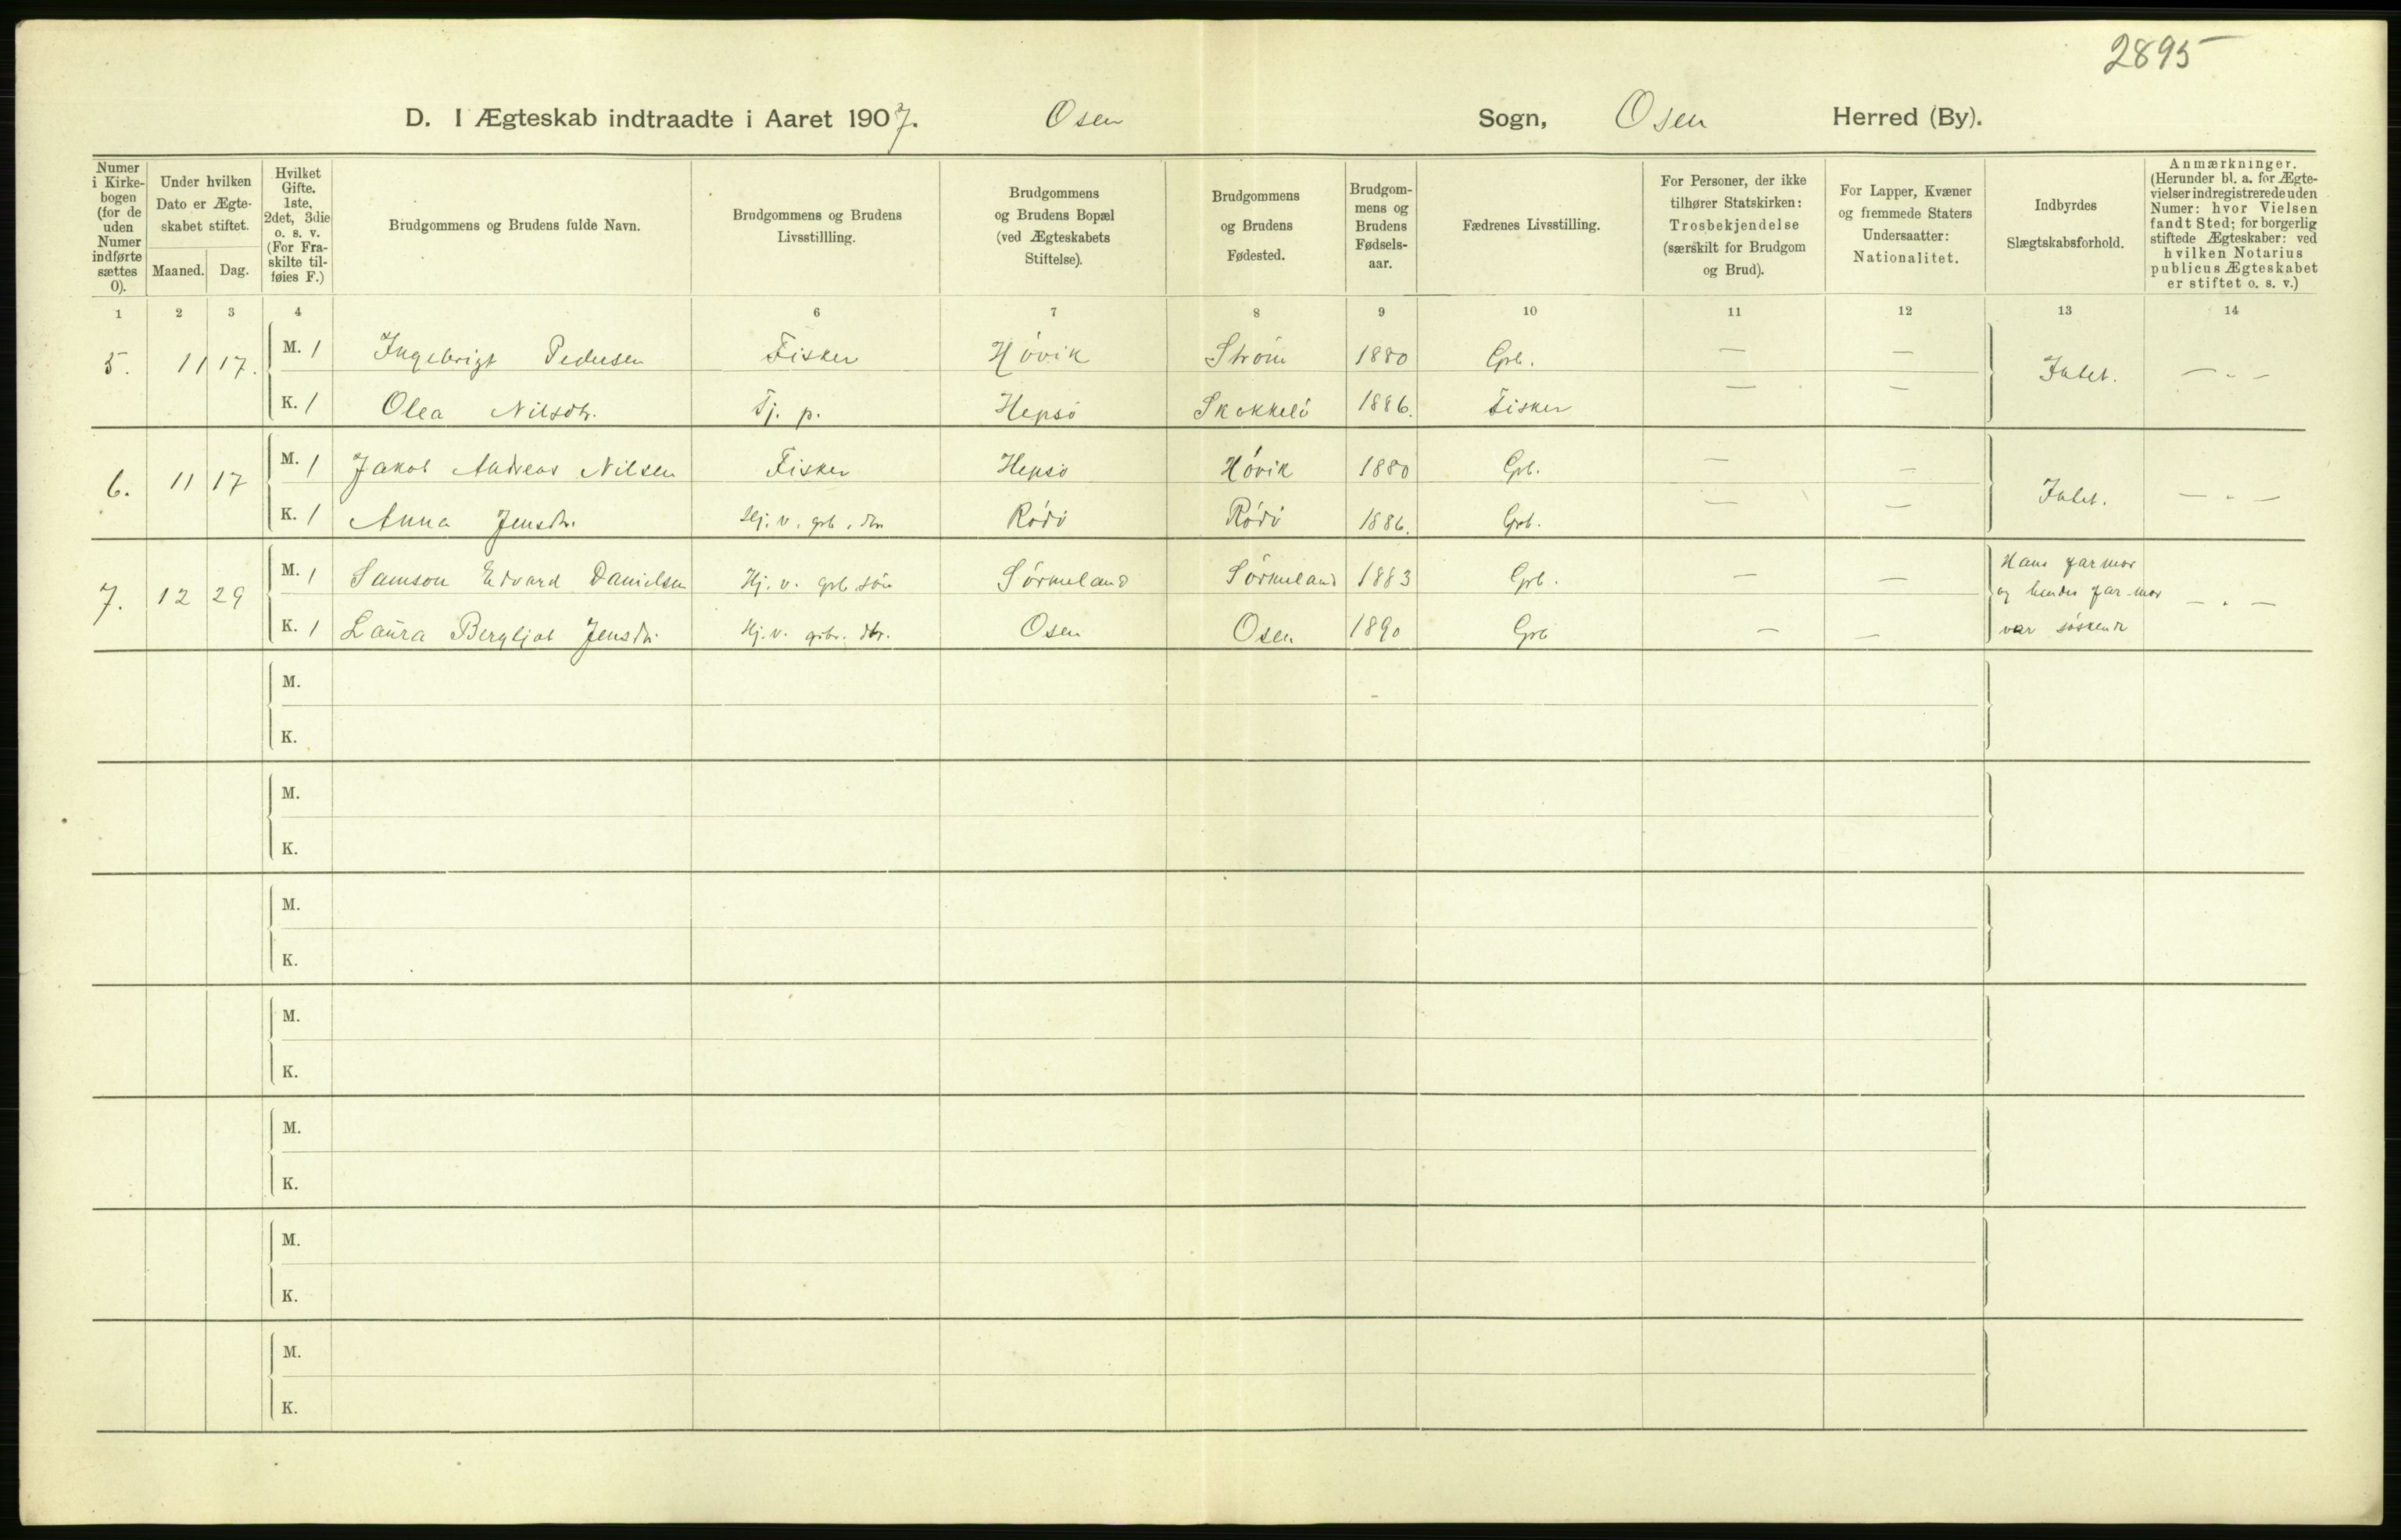 2895
D. I Ægteskab indtraadte i Aaret 1907. Osen Sogn, Osen Herred (By).
Numer i Kirkebogen (for de uden Numer indførte sættes 0).
Under hvilken Dato er Ægteskabet stiftet.
Maaned. Dag.
Hvilket Gifte. 1ste, 2det, 3die o. s. v. (For Fraskilte tilføies F.)
Brudgommens og Brudens fulde Navn.
Brudgommens og Brudens Livsstillling.
Brudgommens og Brudens Bopæl (ved Ægteskabets Stiftelse).
Brudgommens og Brudens Fødested.
Brudgommens og Brudens Fødselsaar.
Fædrenes Livsstilling.
For Personer, der ikke tilhører Statskirken: Trosbekjendelse (særskilt for Brudgom og Brud).
For Lapper, Kvæner og fremmede Staters Undersaatter: Nationalitet.
Indbyrdes Slægtskabsforhold.
Anmærkninger. (Herunder bl. a. for Ægtevielser indregistrerede uden Numer: hvor Vielsen fandt Sted; for borgerlig stiftede Ægteskaber: ved hvilken Notarius publicus Ægteskabet er stiftet o. s. v.)
1 2 3 4 6 7 8 9 10 11 12 13 14
5. 11 17. M. 1 Ingebrigt Pedersen Fisker Hövik Ström 1880 Grb. — — Intet. — " —
K. 1 Olea Nilsdtr. Tj. p. Hepsö Skokkelö 1886. Fisker — —
6. 11 17 M. 1 Jakob Andreas Nilsen Fisker Hepsö Hövik 1880 Grb. — — Intet. — " —
K. 1 Anna Jensdtr. Hj. v. grb. dtr Rödö Rödö 1886. Grb. — —
7. 12 29 M. 1 Samson Edvard Danielsen Hj. v. grb. sön Sörmeland Sörmeland 1883 Grb. — — Hans farmor og hendes far-mor var söskende — " —
K. 1 Laura Bergljot Jensdtr. Hj. v. grbr. dtr. Osen Osen 1890 Grb — —
M.
K.
M.
K.
M.
K.
M.
K.
M.
K.
M.
K.
M.
K.